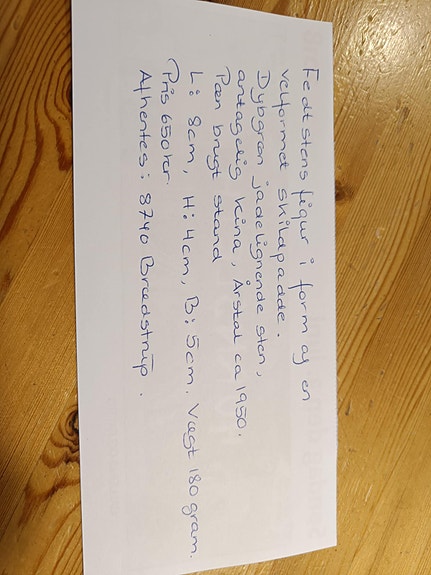 Fedtstens figur i form af en
velformet skildpadde.
Dybgrøn jadelignende sten,
antagelig Kina, Årstal ca 1950.
Pæn brugt stand
L: 8cm, H: 4cm, B: 5cm, Vægt 180 gram.
Pris 650 kr.
Afhentes: 8740 Brædstrup.